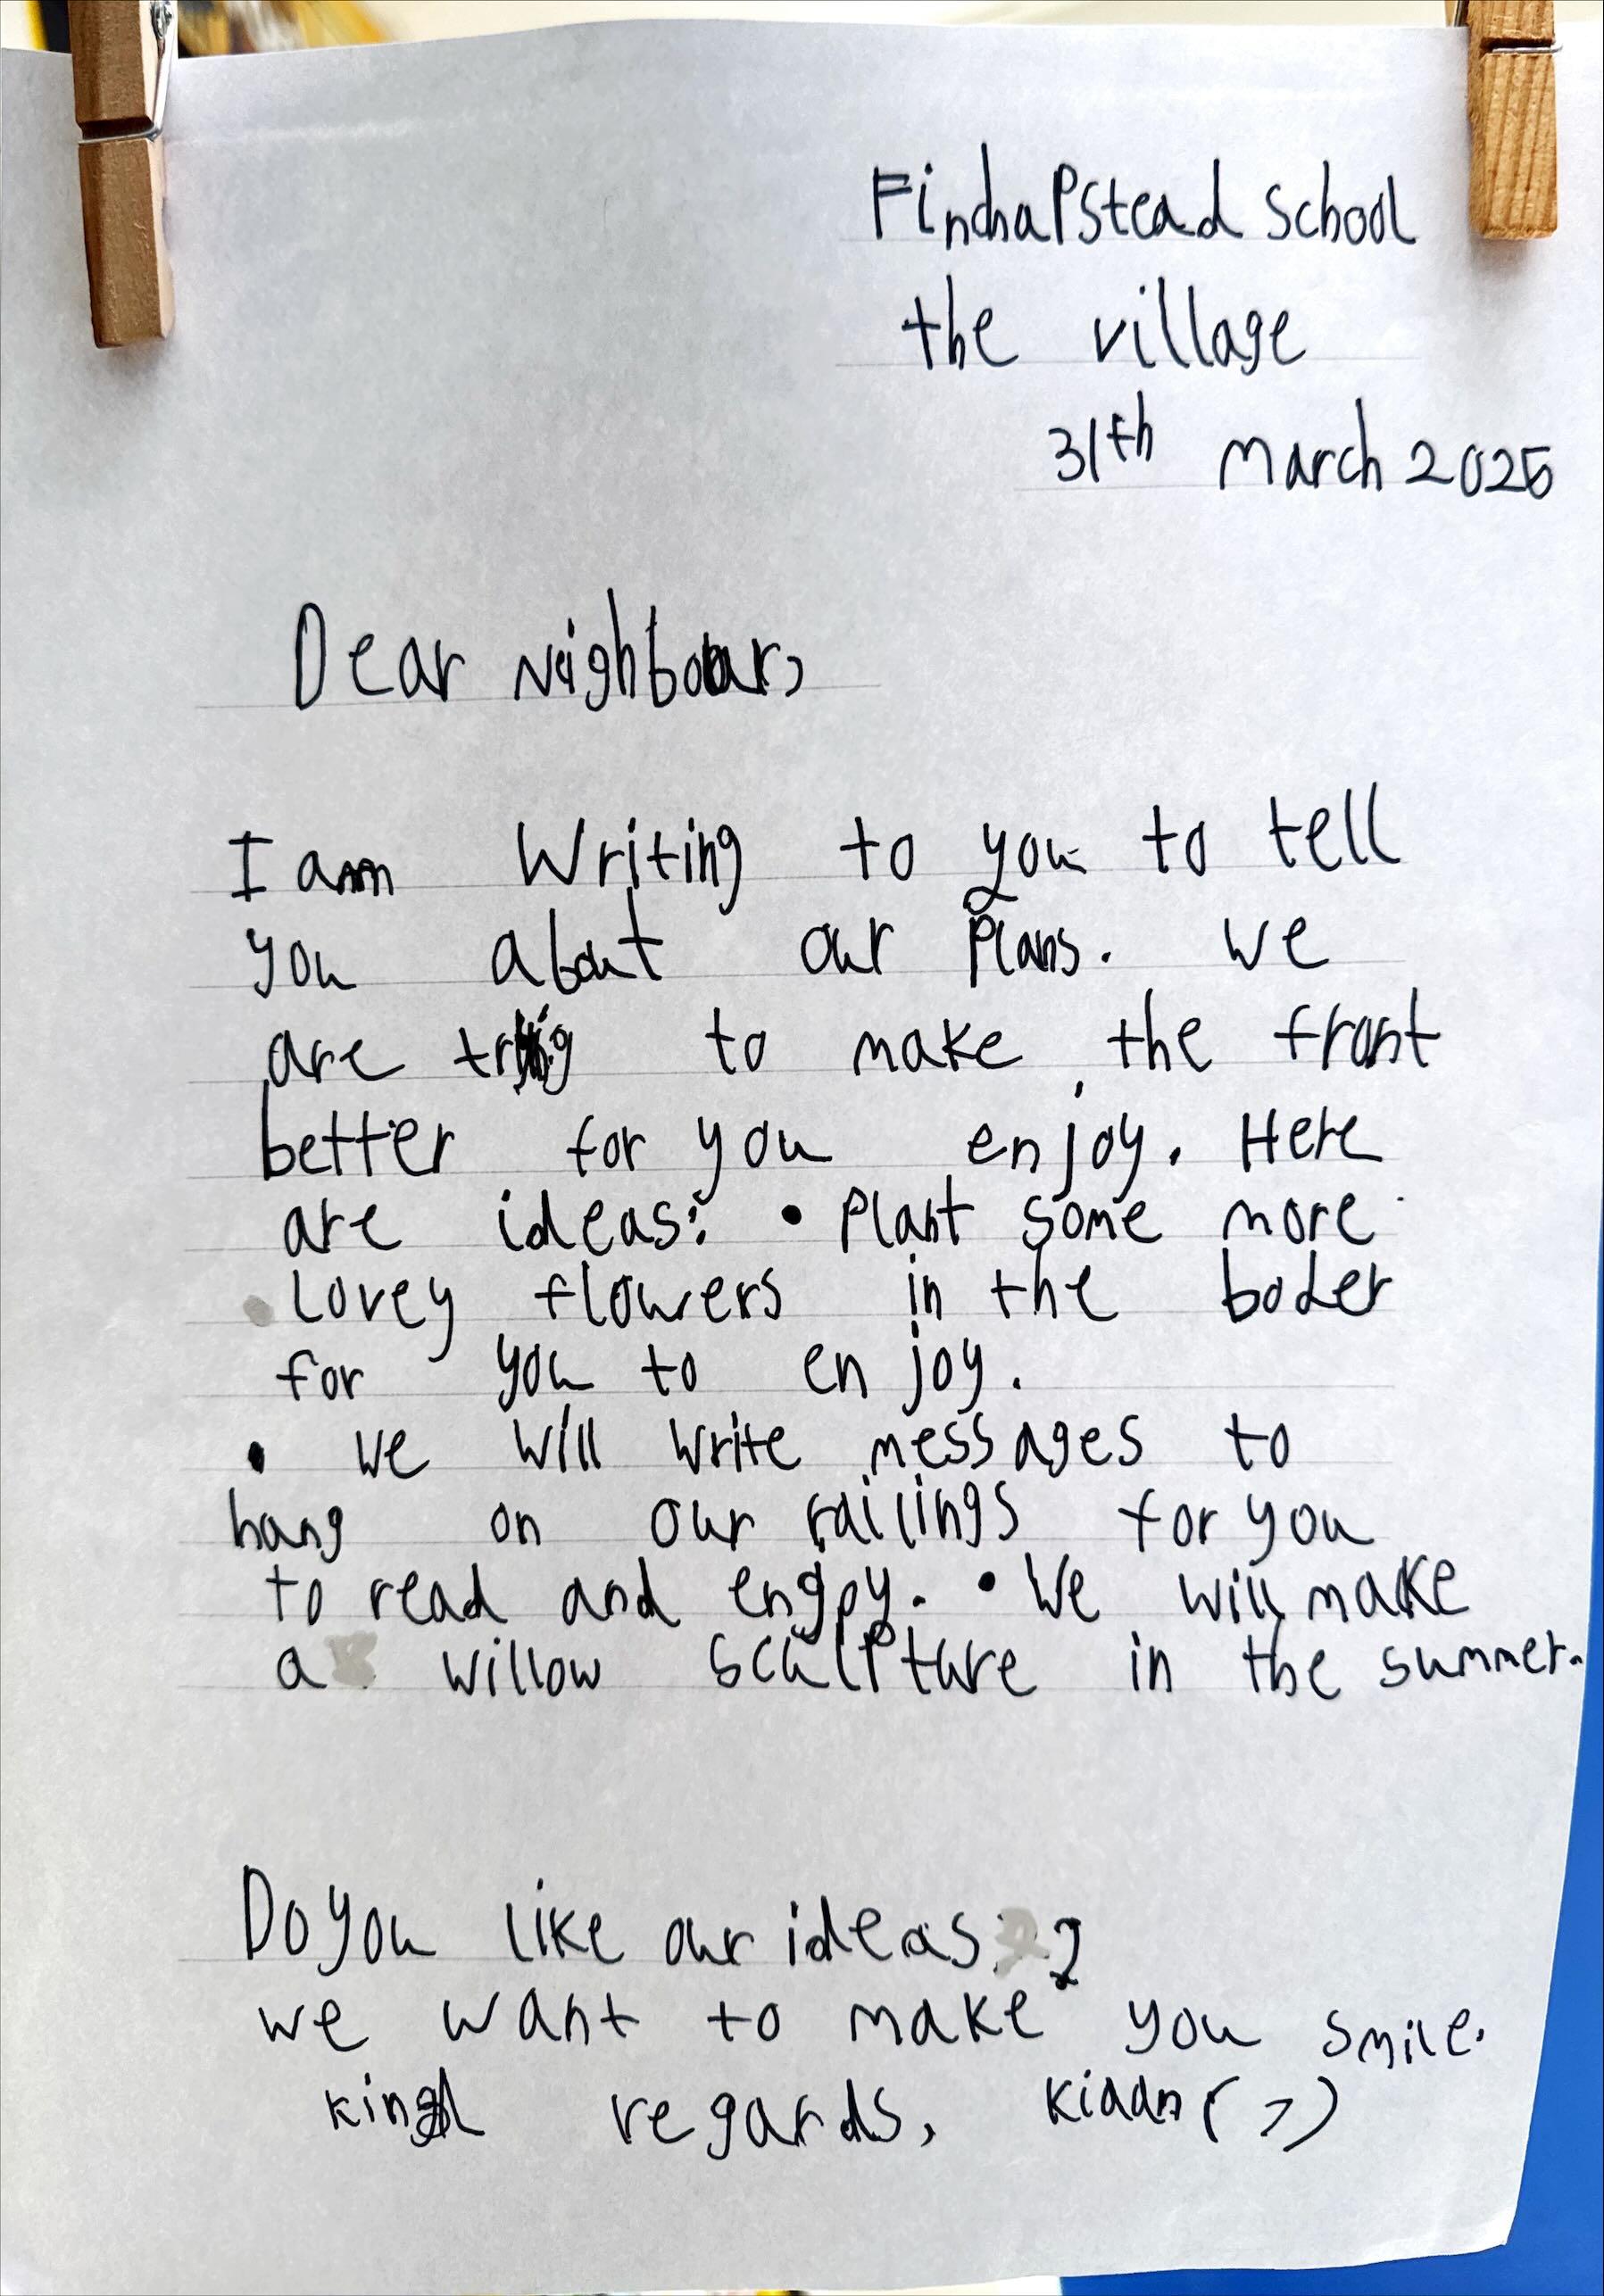 Finchapstead school
the village
31th march 2025
Dear Neighbour,
I am Writing to you to tell
you about our Plans. we
are trying to make the front
better for you enjoy. Here
are ideas: • Plant some more
Lovey flowers in the boder
for you to enjoy.
• we will write messages to
hang on our railings for you
to read and enjoy. • We will make
a willow sculpture in the summer.
Do you like our ideas?
we want to make you smile.
kind regards, (7)